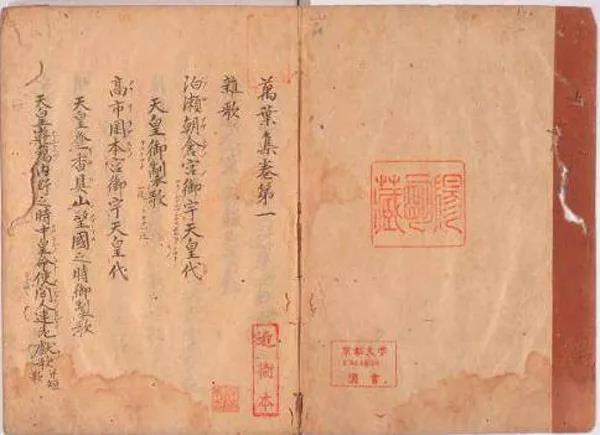 陽明藏
京都大学
圖書
萬葉集卷第一
雜歌
泊瀬朝倉宮御宇天皇代
天皇御製歌
高市岡本宮御宇天皇代
天皇登香具山望國之時御製歌
天皇遊獦内野之時中皇命使間人連老獻歌 并短歌
近衞本